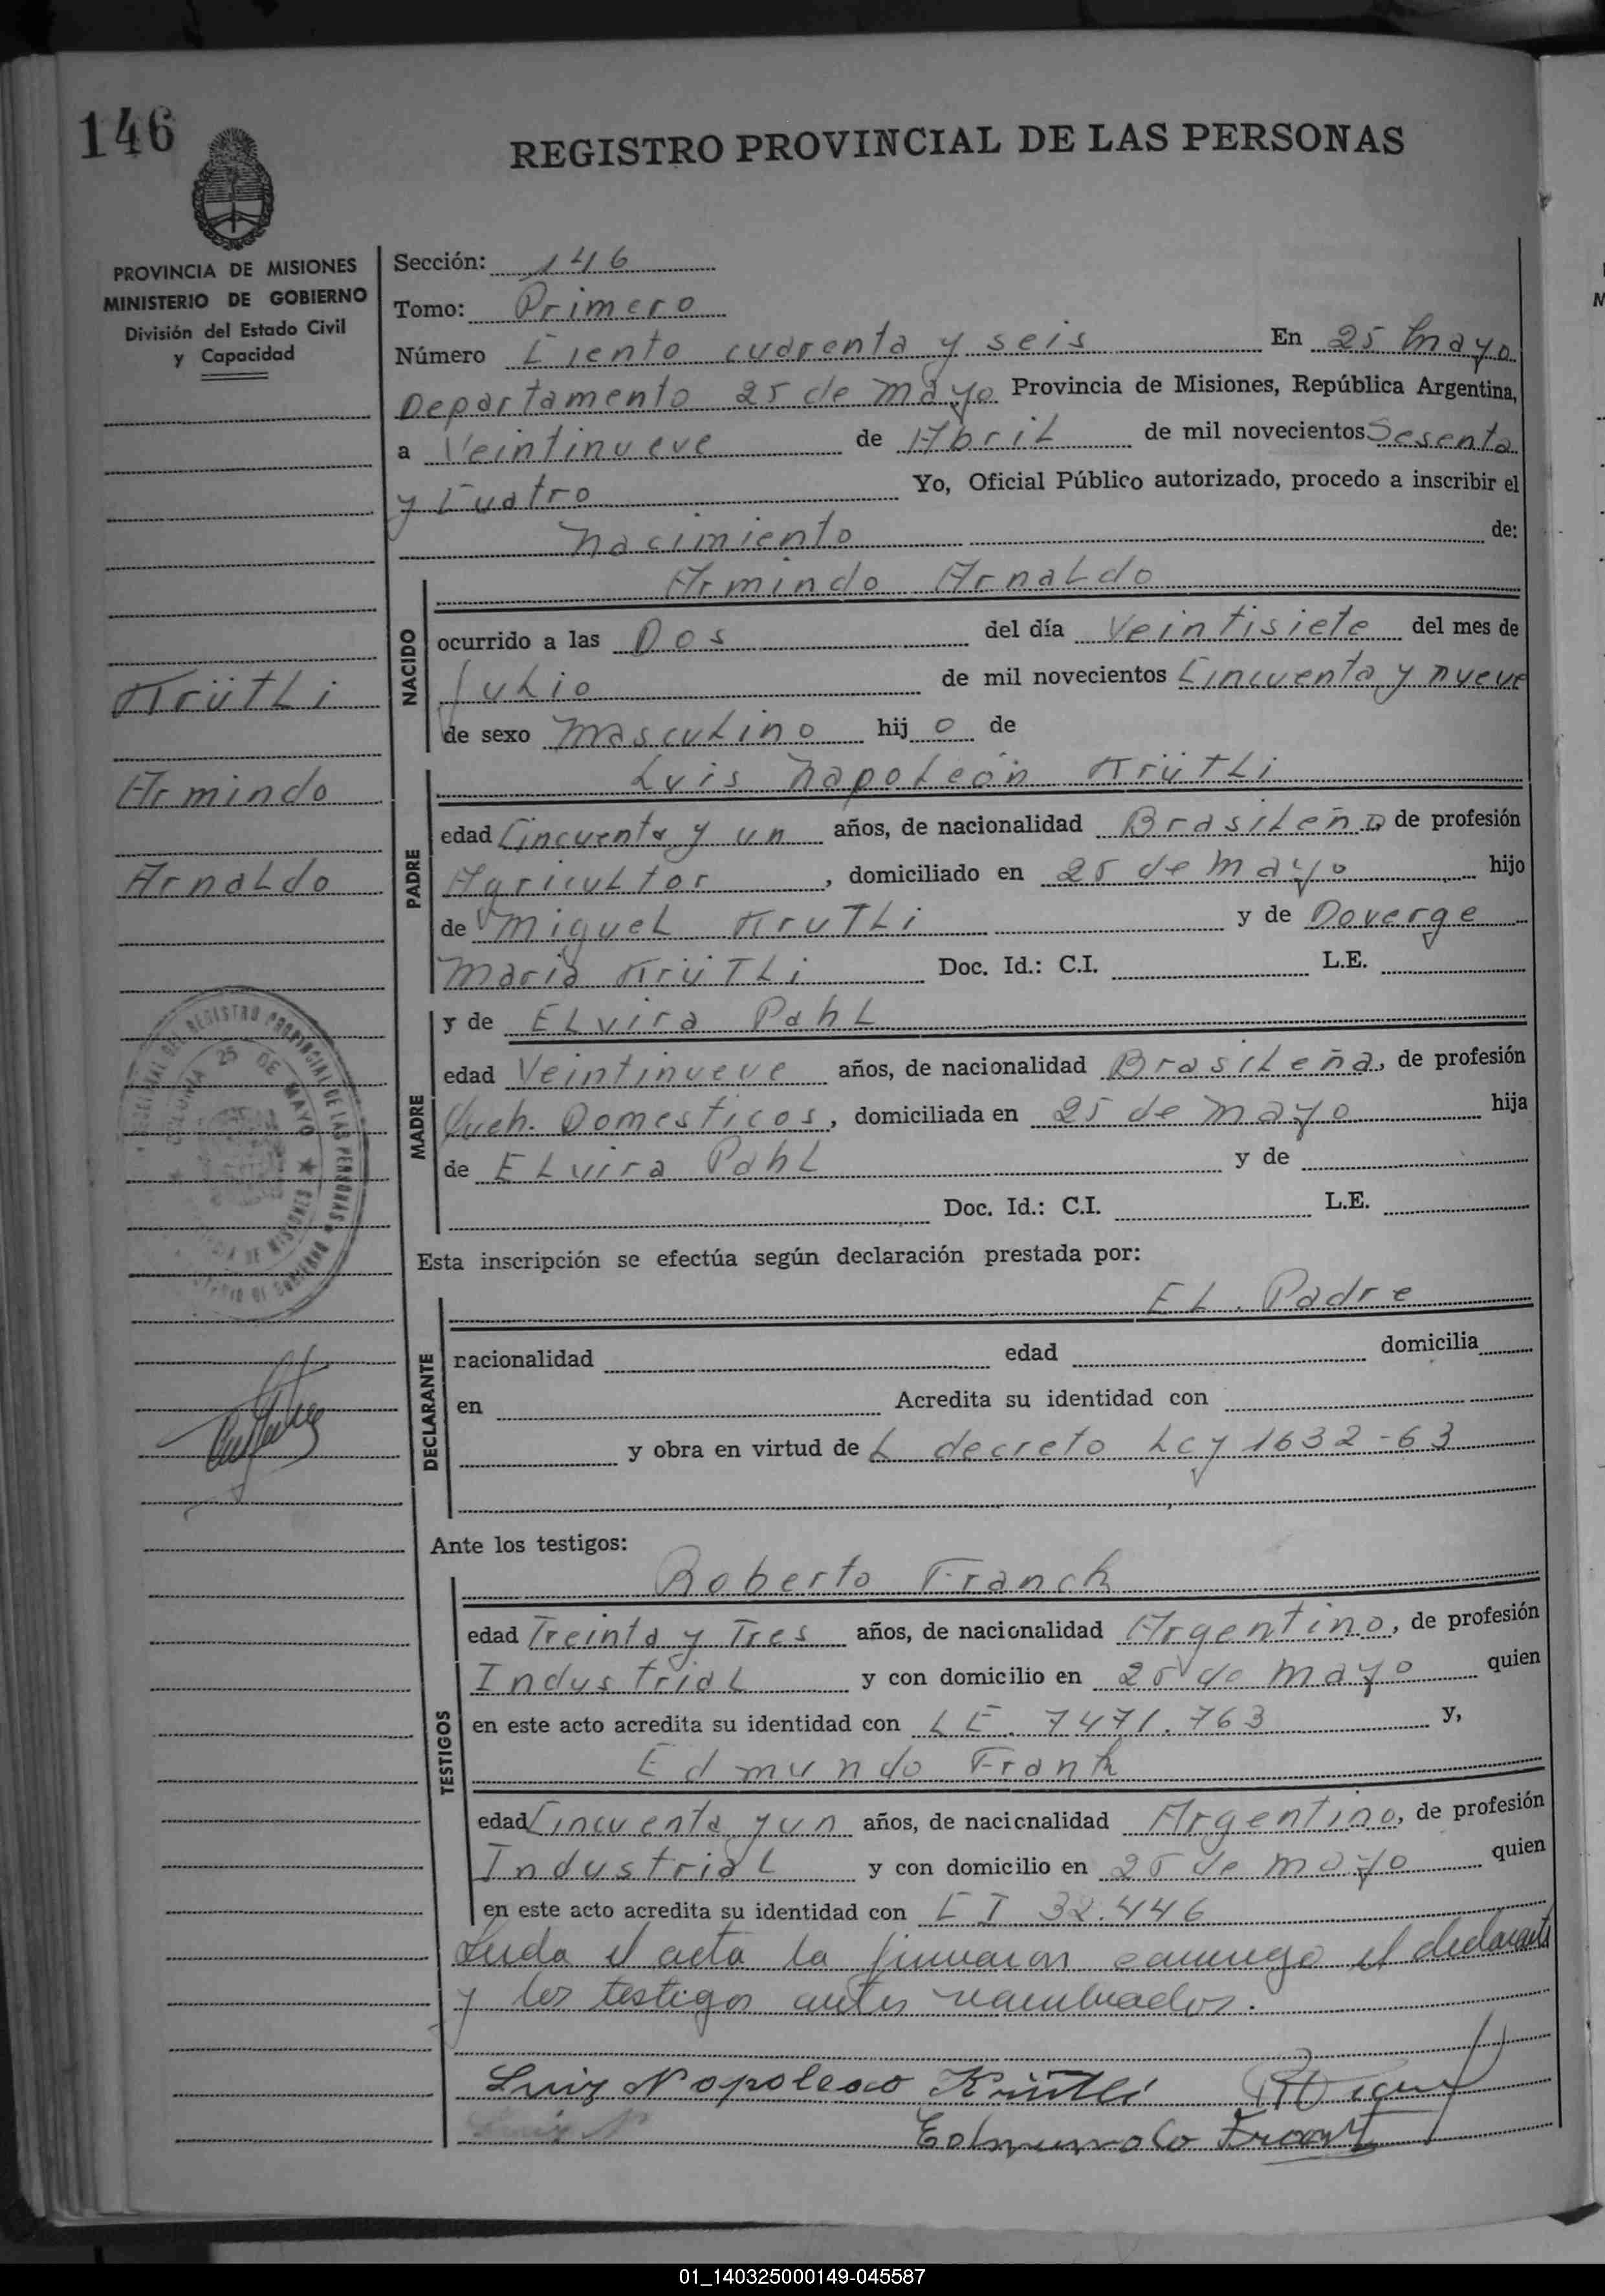 146
REGISTRO PROVINCIAL DE LAS PERSONAS
PROVINCIA DE MISIONES
MINISTERIO DE GOBIERNO
División del Estado Civil
y Capacidad
Sección: 146
Tomo: Primero
Número Ciento cuarenta y seis En 25 Mayo
Departamento 25 de Mayo Provincia de Misiones, República Argentina,
a Veintinueve de Abril de mil novecientos Sesenta
y Cuatro Yo, Oficial Público autorizado, procedo a inscribir el
Nacimiento de:
Krütli
Armindo
Arnaldo
NACIDO
Armindo Arnaldo
ocurrido a las Dos del día Veintisiete del mes de
Julio de mil novecientos Cincuenta y nueve
de sexo Masculino hijo de
PADRE
Luis Napoleón Krütli
edad Cincuenta y un años, de nacionalidad Brasileño de profesión
Agricultor, domiciliado en 25 de Mayo hijo
de Miguel Krutli y de Doverge
Maria Krütli Doc. Id.: C.I. L.E.
MADRE
y de Elvira Pahl
edad Veintinueve años, de nacionalidad Brasileña, de profesión
Queh. Domesticos, domiciliada en 25 de Mayo hija
de Elvira Pahl y de
Doc. Id.: C.I. L.E.
REGISTRO PROVINCIAL DE LAS PERSONAS
COLONIA 25 DE MAYO
Esta inscripción se efectúa según declaración prestada por:
DECLARANTE
El Padre
nacionalidad edad domicilia
en Acredita su identidad con
y obra en virtud de L decreto Ley 1632-63
Ante los testigos:
TESTIGOS
Roberto Franck
edad Treinta y Tres años, de nacionalidad Argentino, de profesión
Industrial y con domicilio en 25 de Mayo quien
en este acto acredita su identidad con L E. 7471.763 y,
Edmundo Frank
edad Cincuenta y un años, de nacionalidad Argentino, de profesión
Industrial y con domicilio en 25 de Mayo quien
en este acto acredita su identidad con C I 32.446
Leida el acta la firmaron conmigo el declarante
y los testigos antes nombrados.
Luiz Napoleao Krütli
Edmundo Frank
01_140325000149-045587